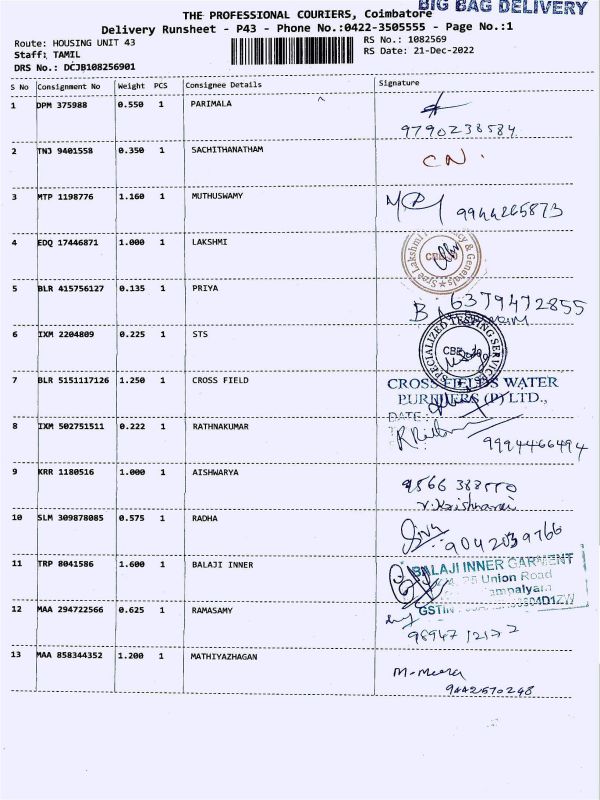 BIG BAG DELIVERY
THE PROFESSIONAL COURIERS, Coimbatore
Delivery Runsheet - P43 - Phone No.:0422-3505555 - Page No.:1
Route: HOUSING UNIT 43
RS No.: 1082569
Staff: TAMIL
RS Date: 21-Dec-2022
DRS No.: DCJB108256901
S No Consignment No Weight PCS Consignee Details Signature
1 DPM 375988 0.550 1 PARIMALA
9790238584
2 TNJ 9401558 0.350 1 SACHITHANATHAM
CN.
3 MTP 1198776 1.160 1 MUTHUSWAMY
9944265873
4 EDQ 17446871 1.000 1 LAKSHMI
Sree Lakshmi
& Generals
5 BLR 415756127 0.135 1 PRIYA
6379472855
6 IXM 2204809 0.225 1 STS
SPECIALIZED TESTING SERVICE
7 BLR 5151117126 1.250 1 CROSS FIELD
CROSS FIELDS WATER
PURIFIERS (P) LTD.,
DATE:
8 IXM 502751511 0.222 1 RATHNAKUMAR
9994466494
9 KRR 1180516 1.000 1 AISHWARYA
9566 388550
10 SLM 309878085 0.575 1 RADHA
9042039766
11 TRP 8041586 1.600 1 BALAJI INNER
BALAJI INNER GARMENT
Union Road
GSTIN
12 MAA 294722566 0.625 1 RAMASAMY
98947 12177
13 MAA 858344352 1.200 1 MATHIYAZHAGAN
M. Meera
9442570248